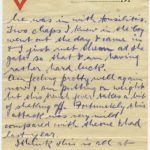 he was in with tonsilitis.
Two chaps I knew in the Coy
went out the day I came in
& I just met them at the
gate so that I am having
rather hard luck.
Am feeling pretty well again
now & am putting on weight
but this takes a bit
of shaking off. Fortunately this
attack was very mild
compared with the one I had
last year.
I think this is all at